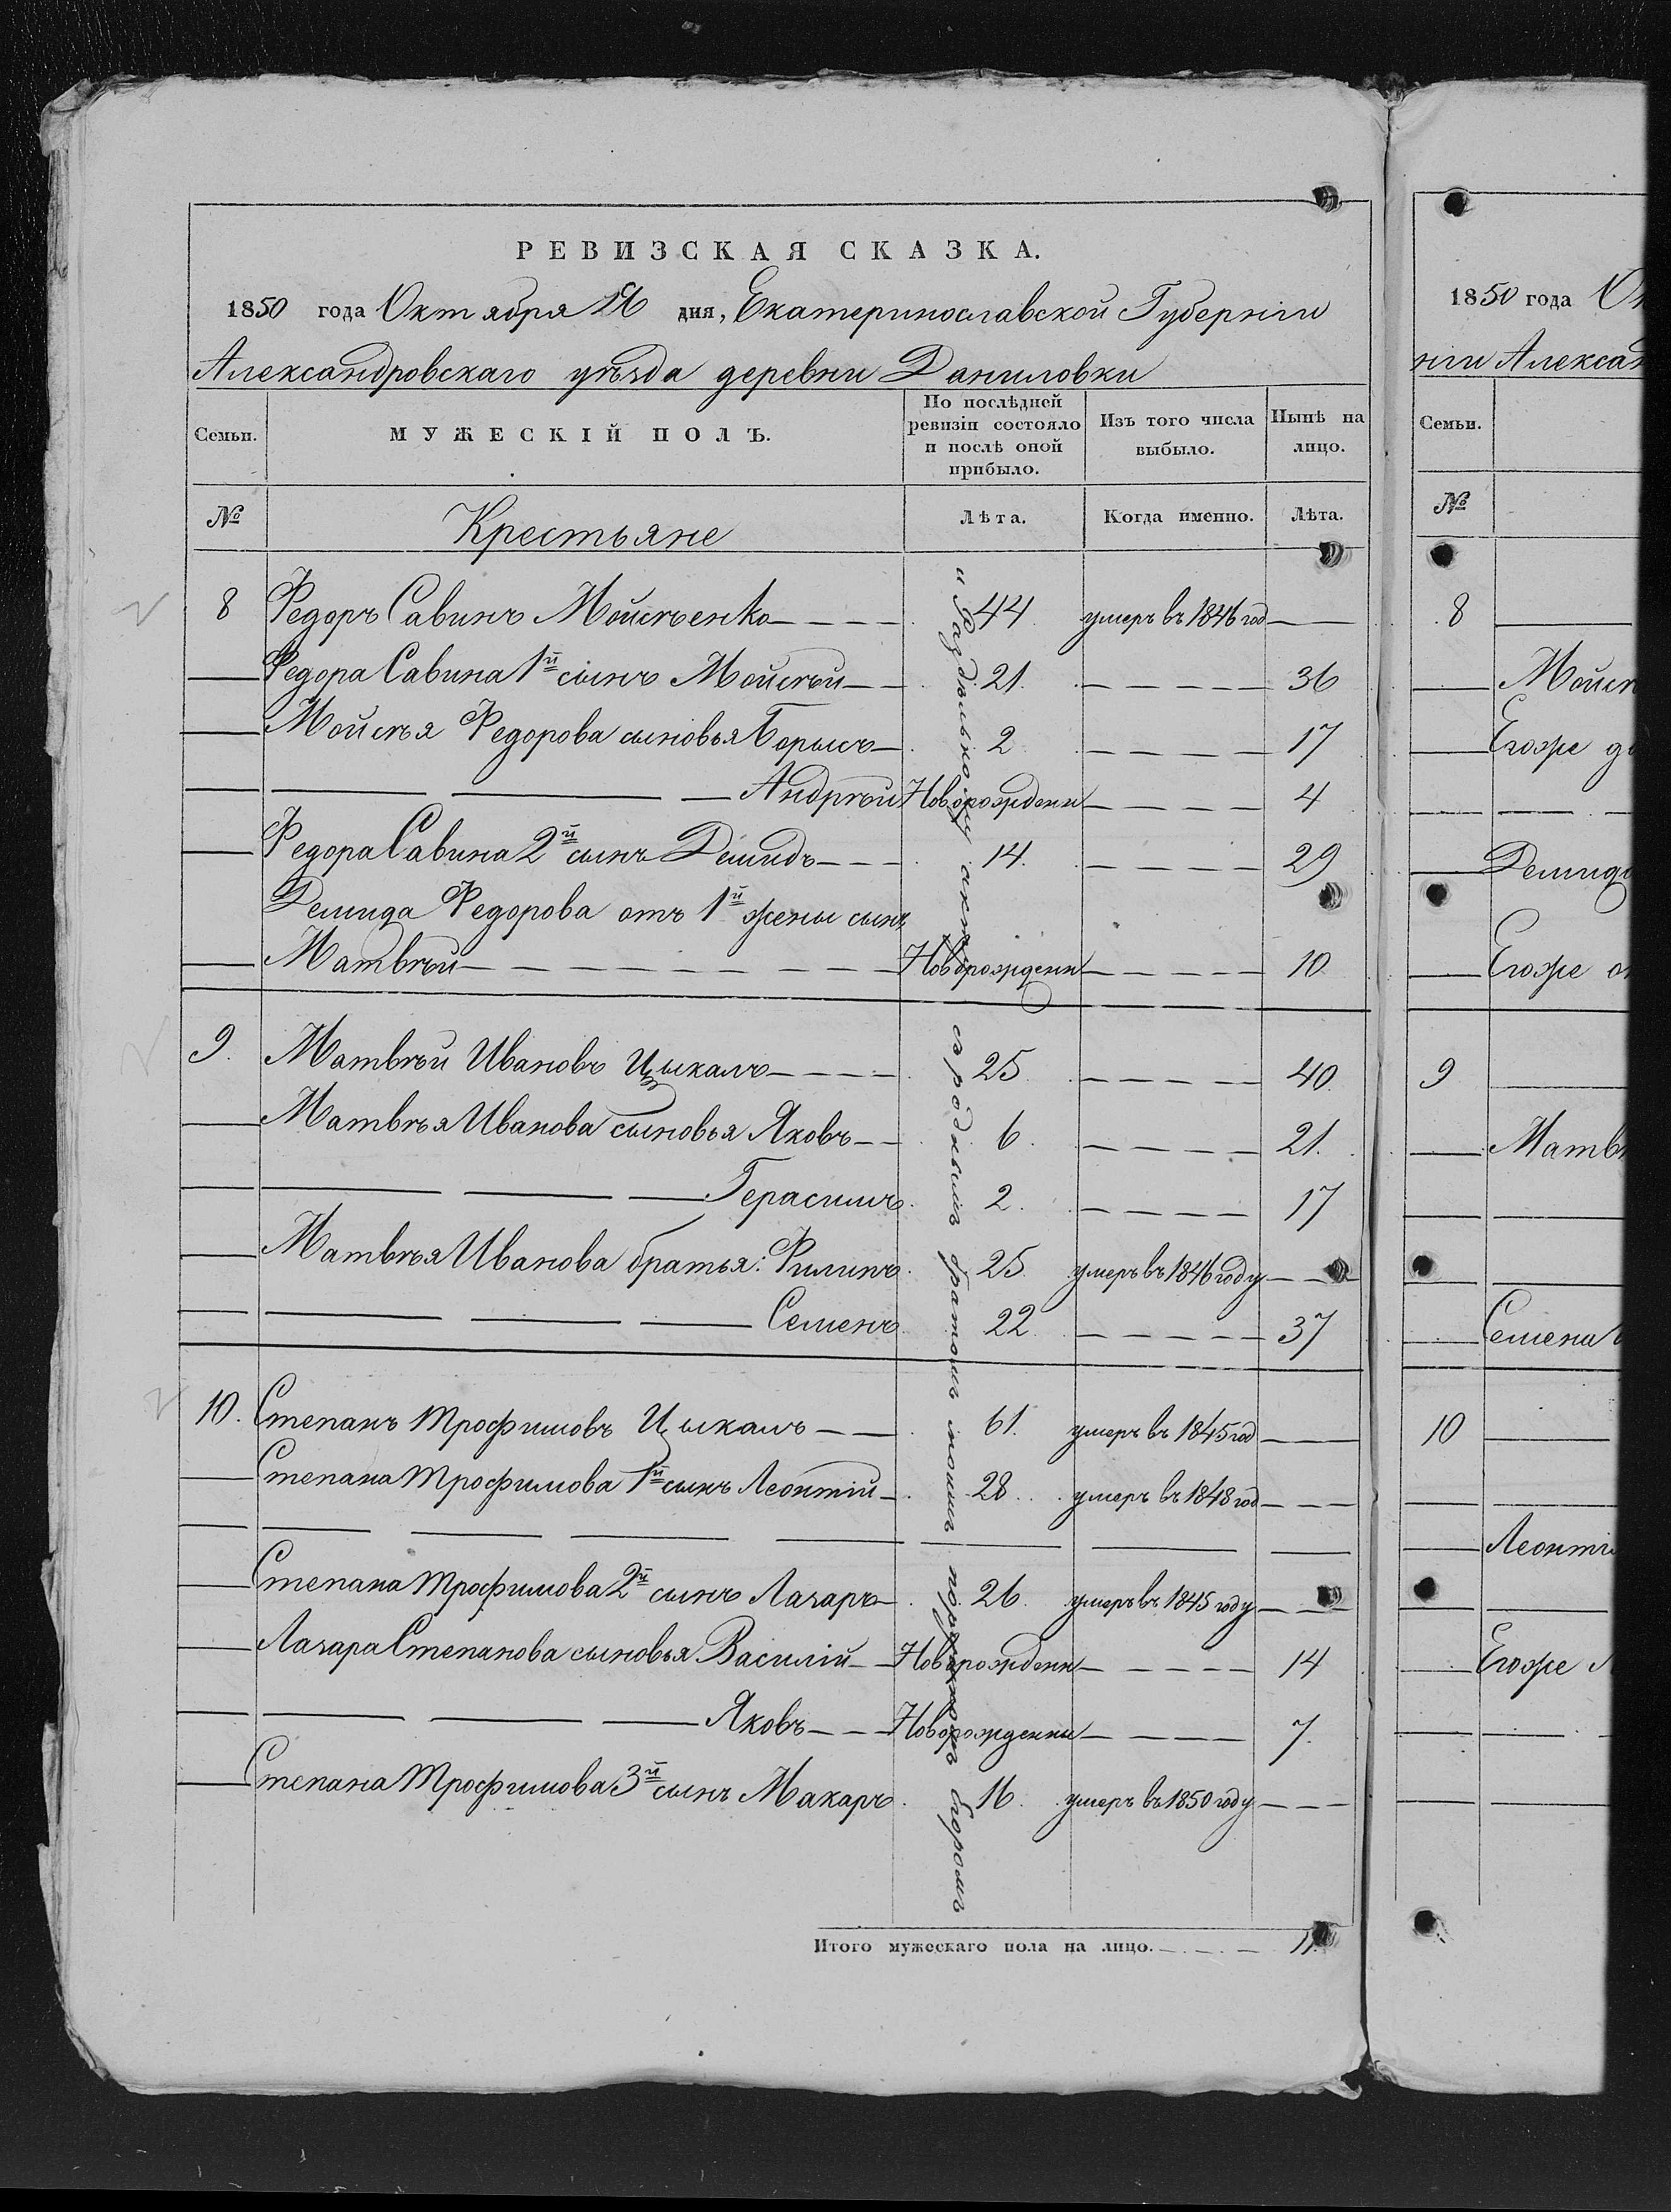 РЕВИЗСКАЯ СКАЗКА.
1850 года Октября 16 дня, Екатеринославской Губерніи
Александровскаго уѣзда деревни Даниловки
Семьи. МУЖЕСКІЙ ПОЛЪ. По послѣдней ревизіи состояло и послѣ оной прибыло. Изъ того числа выбыло. Нынѣ на лицо.
№ Крестьяне Лѣта. Когда именно. Лѣта.
8 Федоръ Савинъ Мойсѣенко 44 умеръ въ 1846 год
Федора Савина 1й сынъ Мойсѣй 21. 36
Мойсѣя Федорова сыновья Борысъ 2 17
Андрѣй Новорожденн 4
Федора Савина 2й сынъ Демидъ 14. 29
Демида Федорова отъ 1й жены сынъ
Матвѣй Новорожденн 10
9. Матвѣй Ивановъ Цыкалъ 25 40
Матвѣя Иванова сыновья Яковъ 6 21.
Герасимъ 2. 17
Матвѣя Иванова братья: Филипъ 25 умеръ въ 1846 году
Семенъ 22 37
10. Степанъ Трофимовъ Цыкалъ 61. умеръ въ 1845 год
Степана Трофимова 1й сынъ Леонтій 28 умеръ въ 1848 год
Степана Трофимова 2й сынъ Лазаръ 26. умеръ въ 1845 году
Лазара Степанова сыновья Василій Новорожденн 14
Яковъ Новорожденны 7.
Степана Трофимова 3й сынъ Макаръ 16. умеръ въ 1850 году
Итого мужескаго пола на лицо. 11.
и Раздѣльному акту съ роднымъ братомъ моимъ порутчикомъ Егоромъ
1850 года Ок
ніи Алексан
Семьи.
№
8
Мойсѣ
Егоже до
Демида
Егоже от
9
Матвѣ
Семена
10
Леонті
Егоже